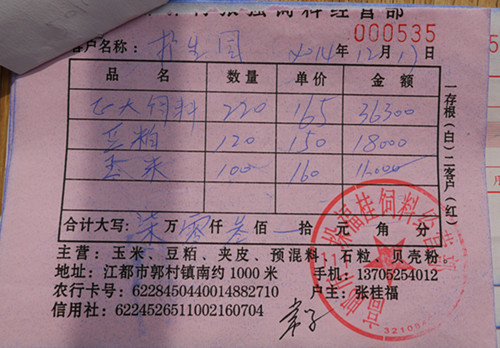 饲料经营部
000535
客户名称: 2014年12月17日
品名 数量 单价 金额
正大饲料 220 165 36300
豆粕 120 150 18000
玉米 100 160 16000
合计大写: 柒万零仟叁佰一拾元角分
一存根(白)二客户(红)
主营: 玉米、豆粕、夹皮、预混料、石粒、贝壳粉
地址: 江都市郭村镇南约1000米 手机: 13705254012
农行卡号: 6228450440014882710 户主: 张桂福
信用社: 6224526511002160704
桂福饲料经营部